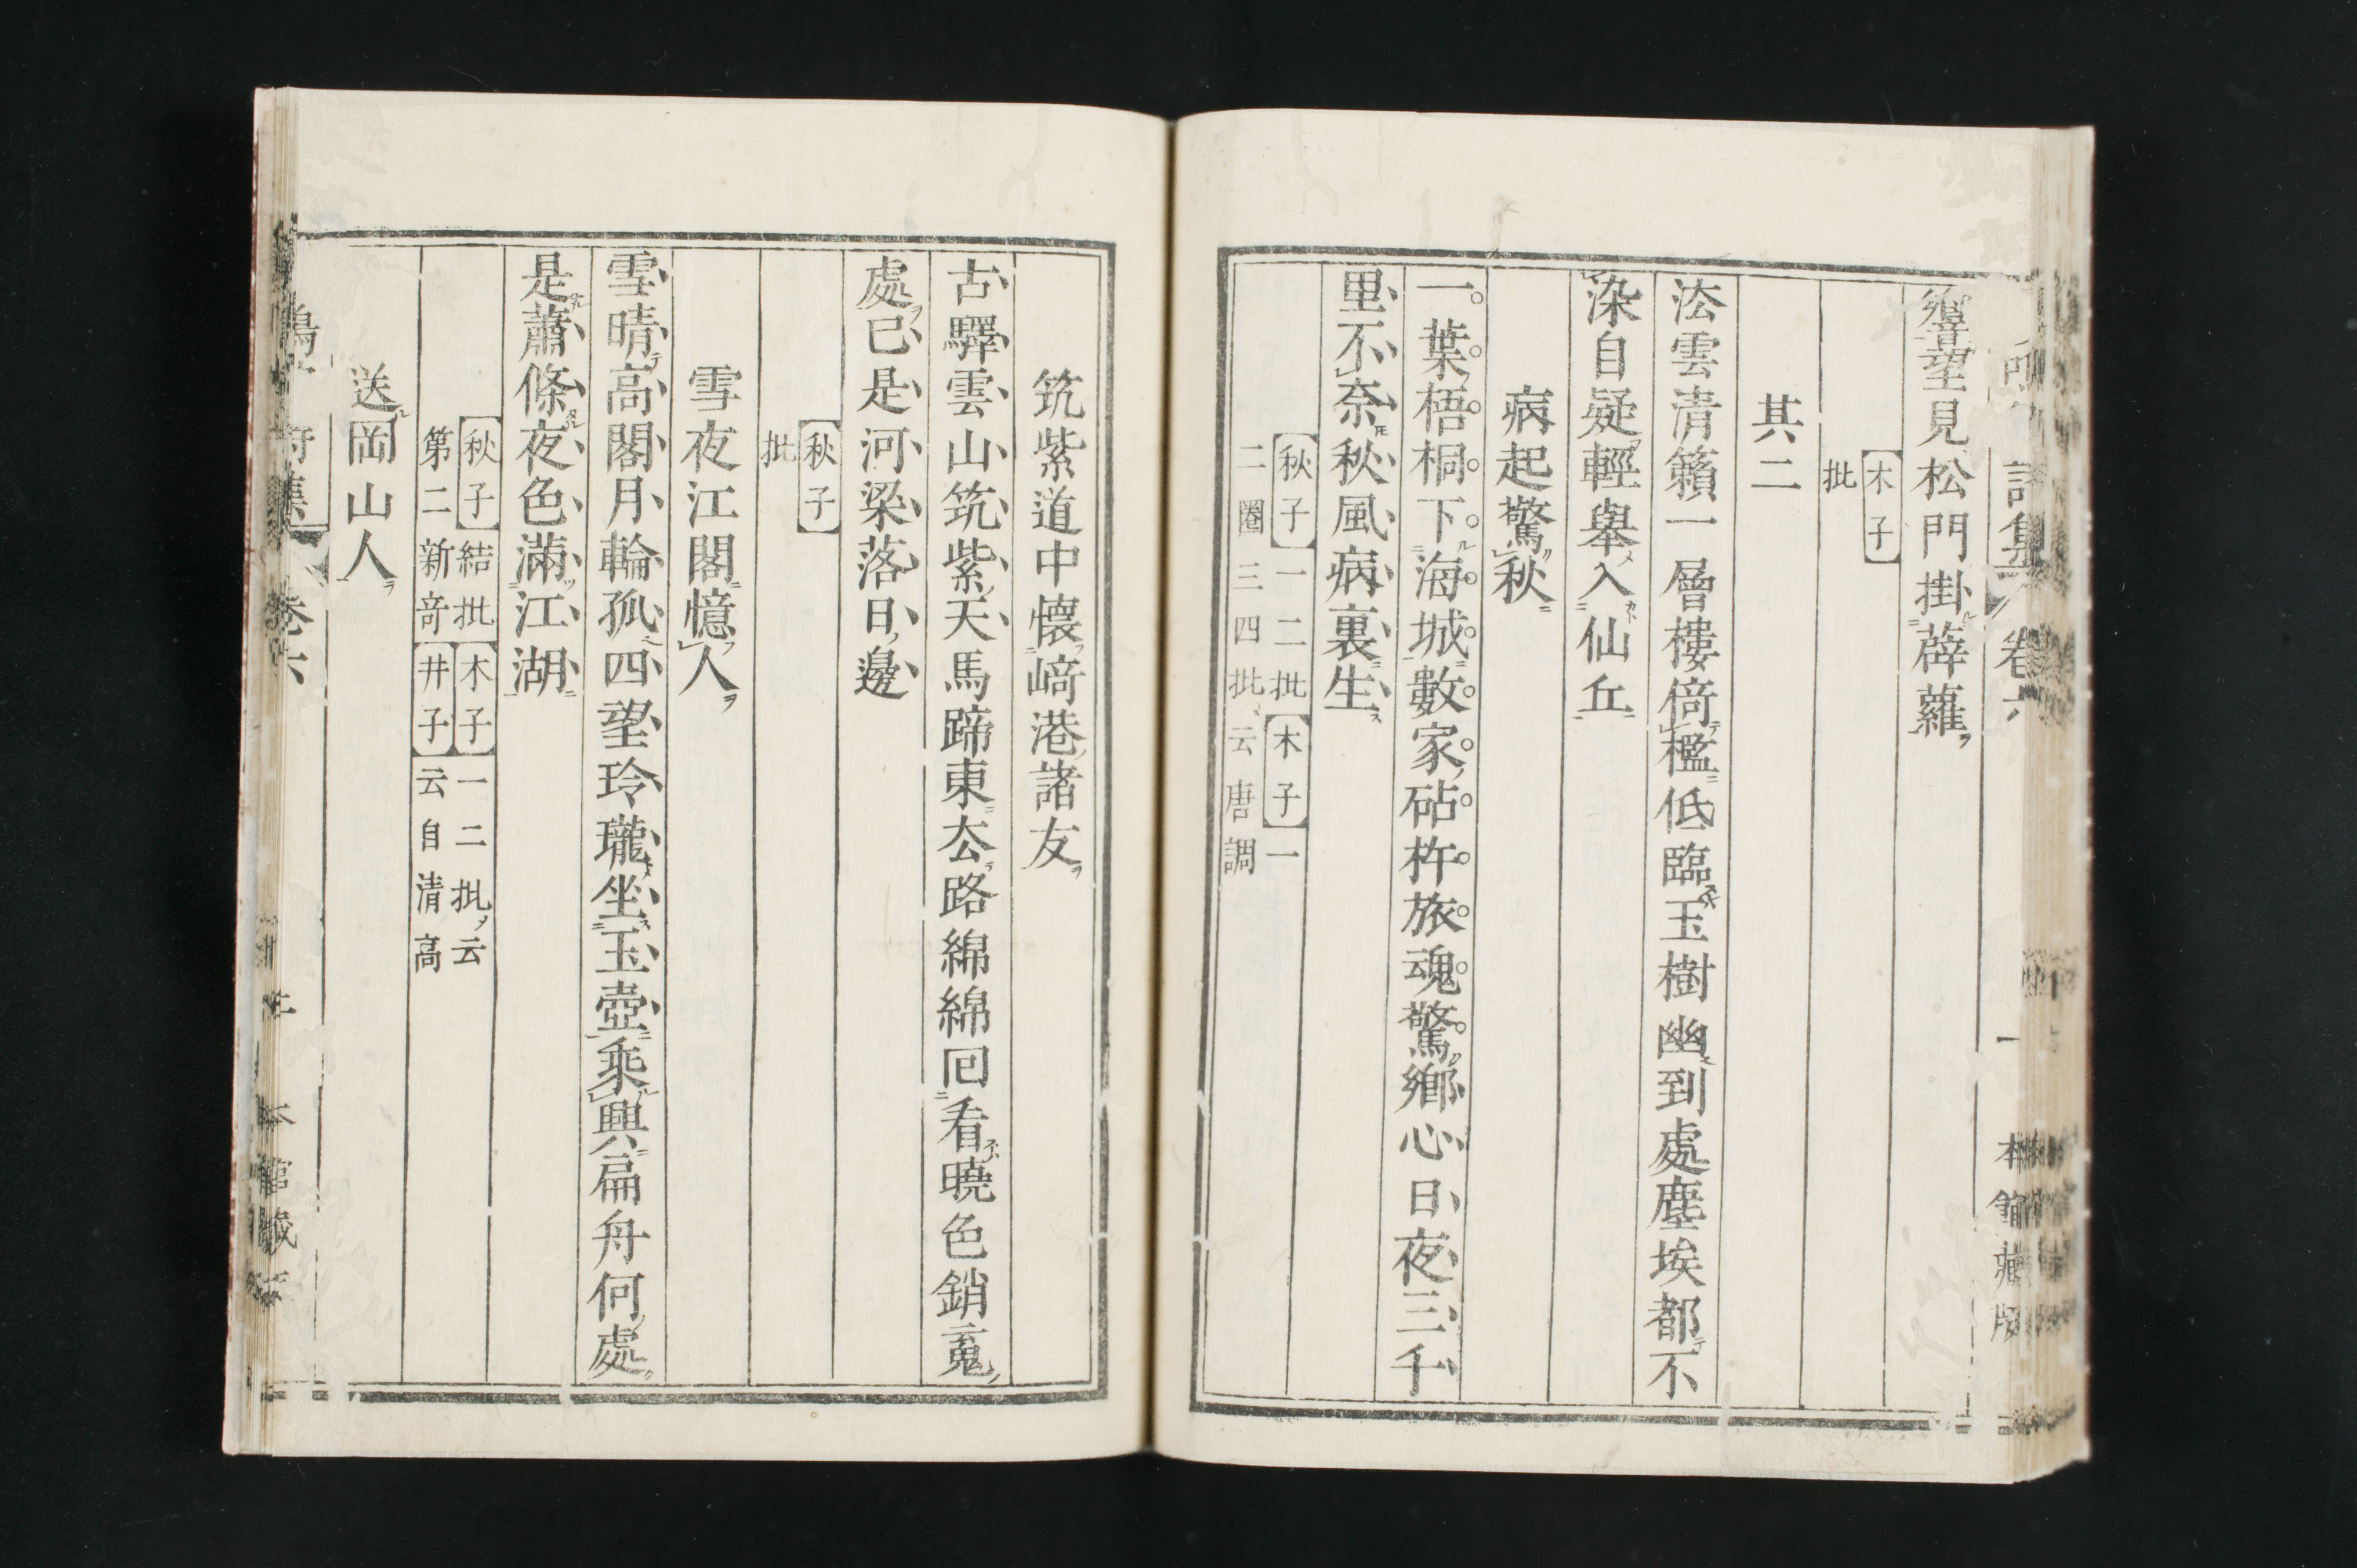 響望見松門掛薜蘿
【木子】
批
其二
法雲清籟一層樓倚檻低臨玉樹幽到處塵埃都不
染自疑輕舉入仙丘
病起驚秋
一葉梧桐下海城數家砧杵旅魂驚鄉心日夜三千
里不奈秋風病裏生
【秋子】一二批【木子】一
二圈三四批云唐調
筑紫道中懷﨑港諸友
古驛雲山筑紫天馬蹄東去路綿綿回看曉色銷䰟
處已是河梁落日邊
【秋子】
批
雪夜江閣憶人
雪晴高閣月輪孤四望玲瓏坐玉壺乘興扁舟何處
是蕭條夜色滿江湖
【秋子】結批【木子】一二批云
第二新奇【井子】云自清高
送岡山人
卷六